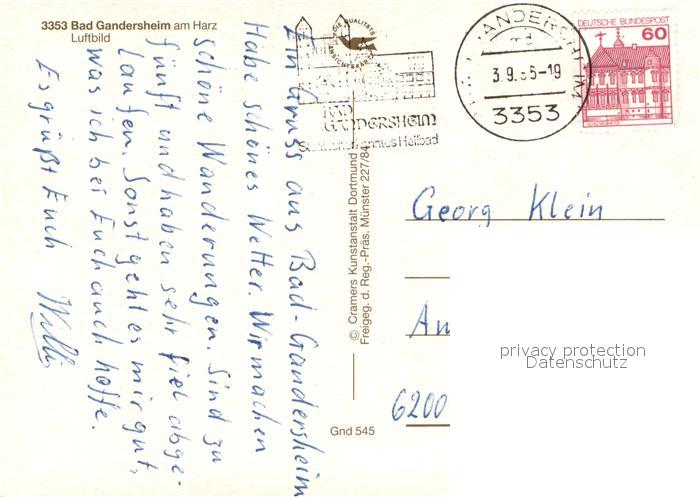 3353 Bad Gandersheim am Harz
Luftbild
Ein Gruss aus Bad-Gandersheim
Habe schönes Wetter. Wir machen
schöne Wanderungen. Sind zu
fünft und haben sehr fiel abge-
laufen. Sonst geht es mir gut,
was ich bei Euch auch hoffe.
Es grüßt Euch Willi
© Cramers Kunstanstalt Dortmund
Freigeg. d. Reg.-Präs. Münster 227/84
Gnd 545
BAD
GANDERSHEIM
Heilbad
3353
DEUTSCHE BUNDESPOST
60
Georg Klein
An
6200
privacy protection
Datenschutz